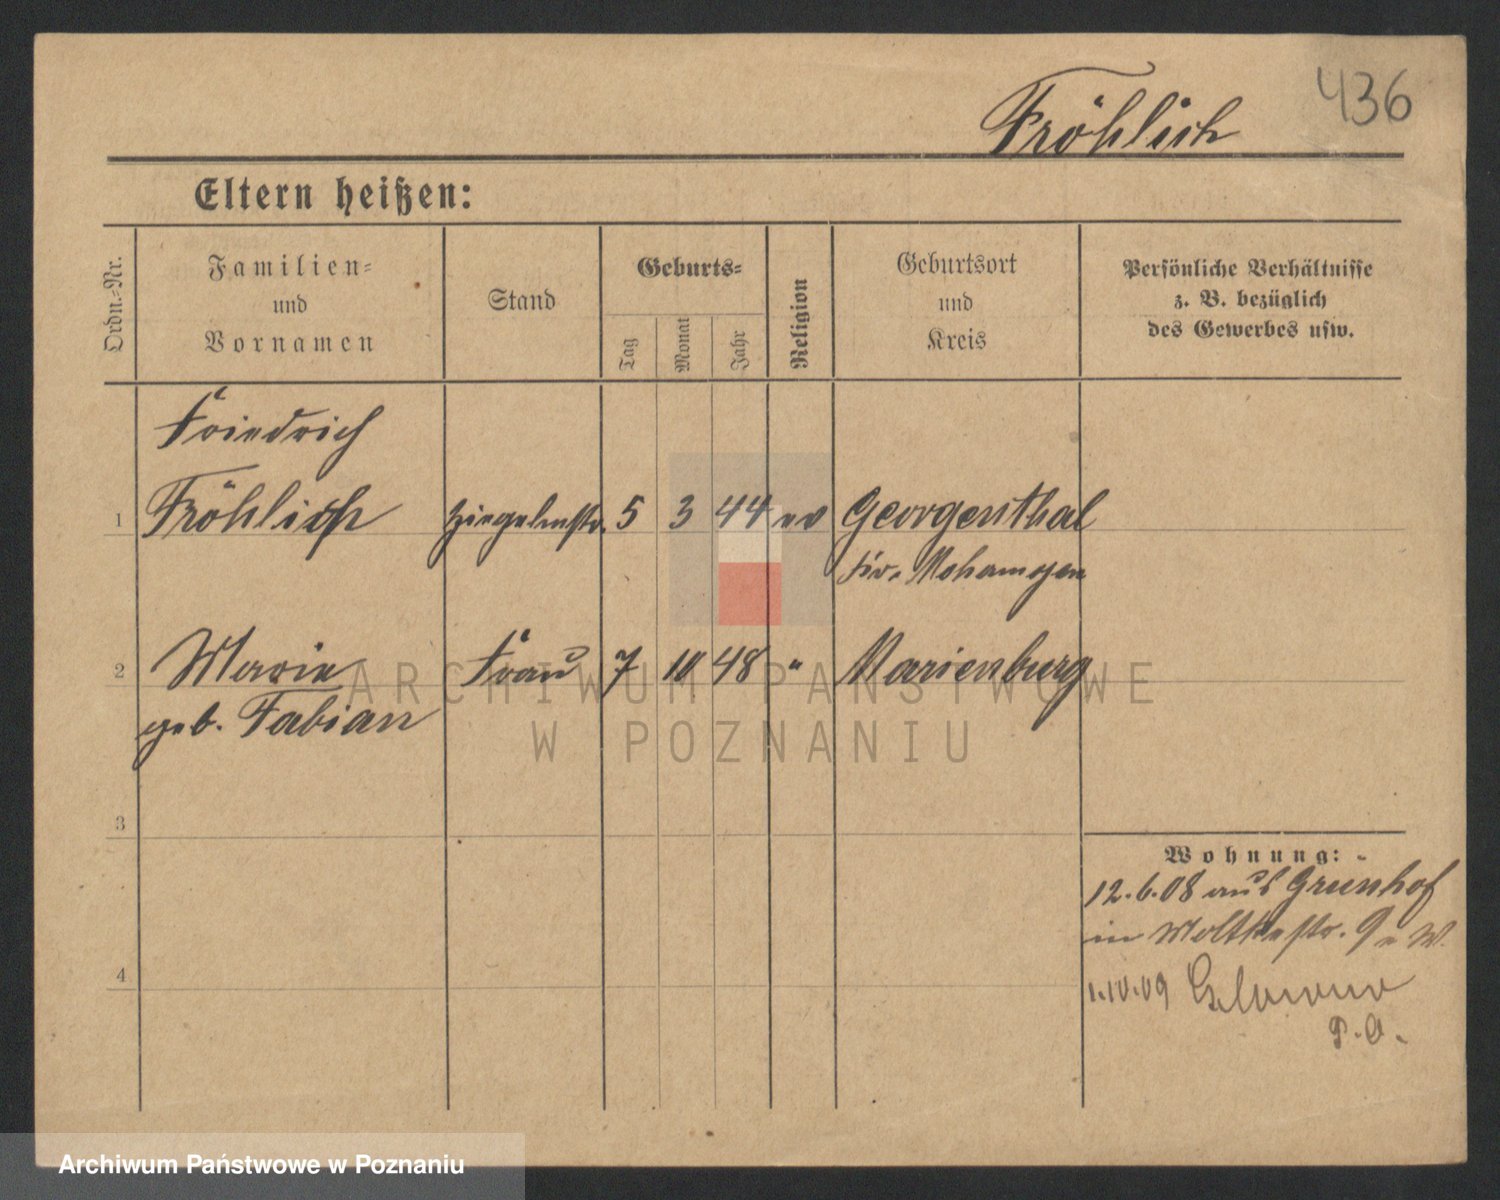 436
Fröhlich
Eltern heißen:
Ordn.=Nr.
Familien=
und
Vornamen
Stand
Geburts=
Tag
Monat
Jahr
Religion
Geburtsort
und
Kreis
Persönliche Verhältnisse
z. B. bezüglich
des Gewerbes usw.
Friedrich
1 Fröhlich Ziegelmstr. 5 3 44 ev Georgenthal
Kr. Mohrungen
2 Marie Frau 7 10 48 " Marienburg
geb. Fabian
3
4
Wohnung:
12.6.08 aus Grünhof
in Moltkestr. 9 W.
1.IV.09
P.A.
ARCHIWUM PAŃSTWOWE
W POZNANIU
Archiwum Państwowe w Poznaniu